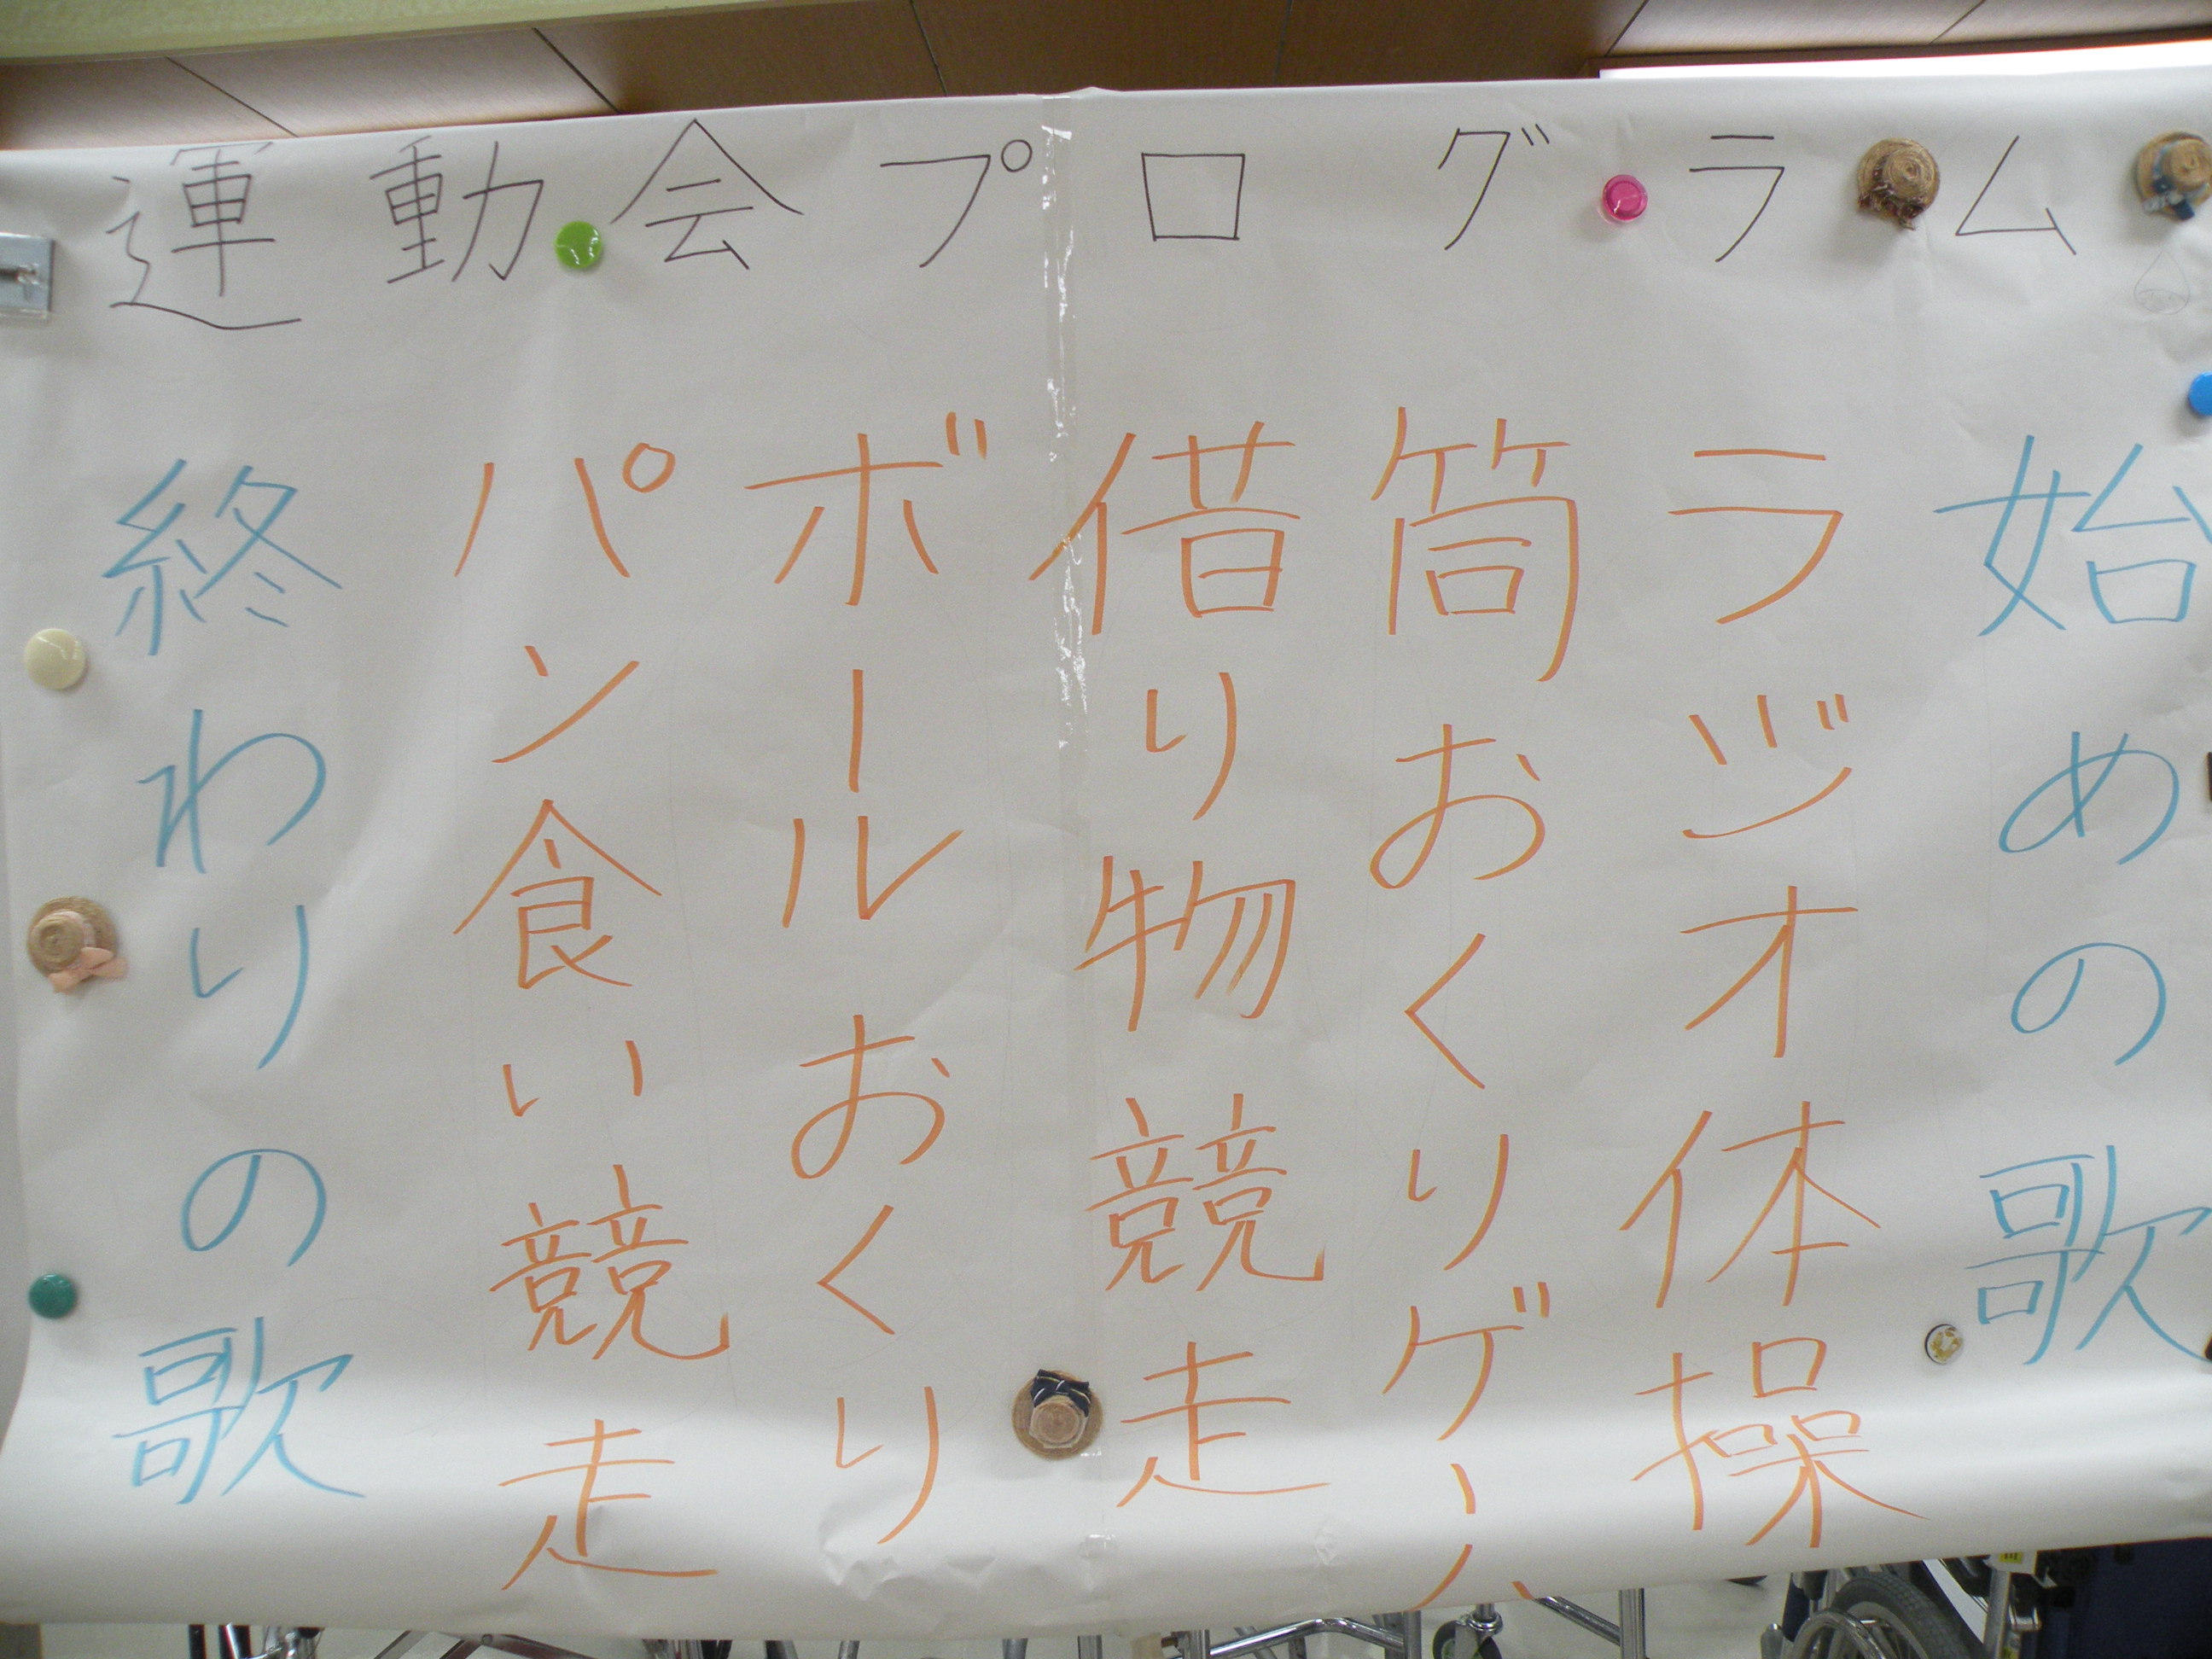 運動会プログラム
始めの歌
ラジオ体操
筒おくりゲーム
借り物競走
ボールおくり
パン食い競走
終わりの歌